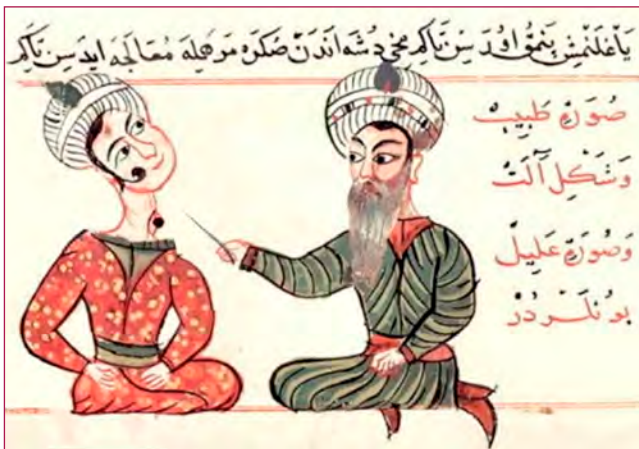 ياغلنمش پنمق اودسن تاكم دشه اندن صكره مرهمله معالجه ايدسن تاكم
صورة طبيب
وشكل آلت
وصورة عليل
بونلردر